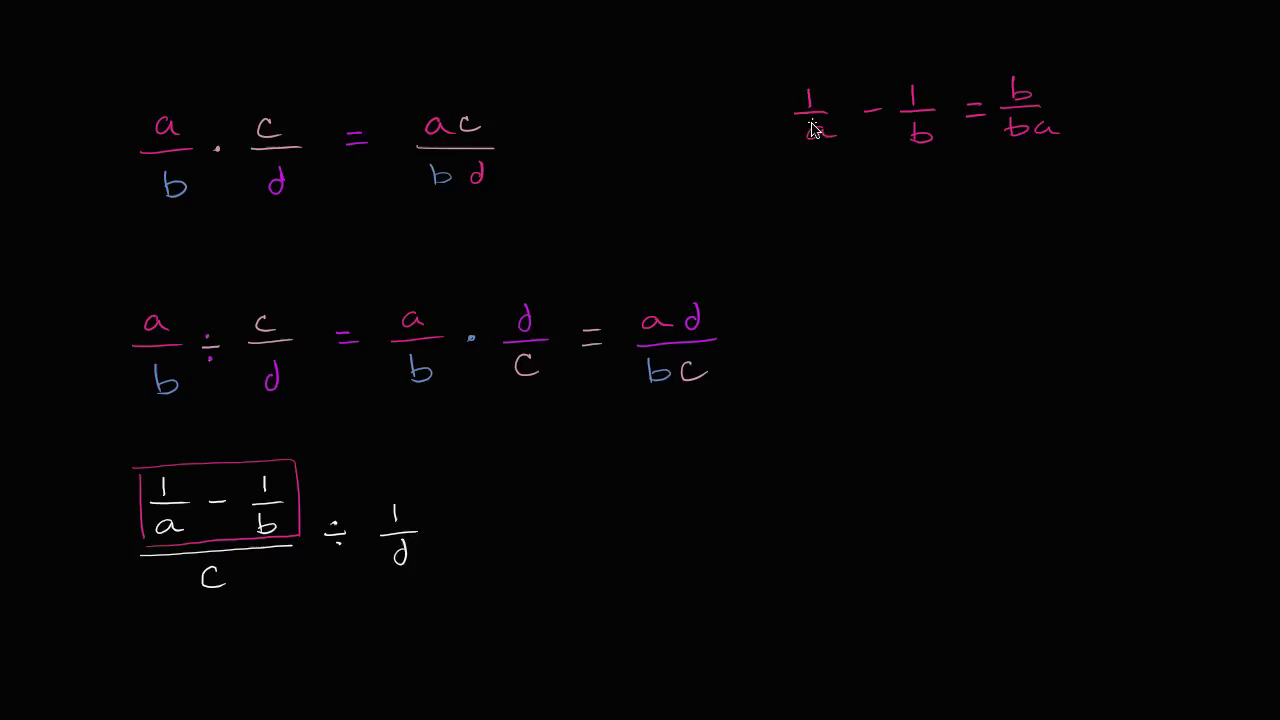 a/b · c/d = ac/bd
1/a - 1/b = b/ba
a/b ÷ c/d = a/b · d/c = ad/bc
(1/a - 1/b)/c ÷ 1/d